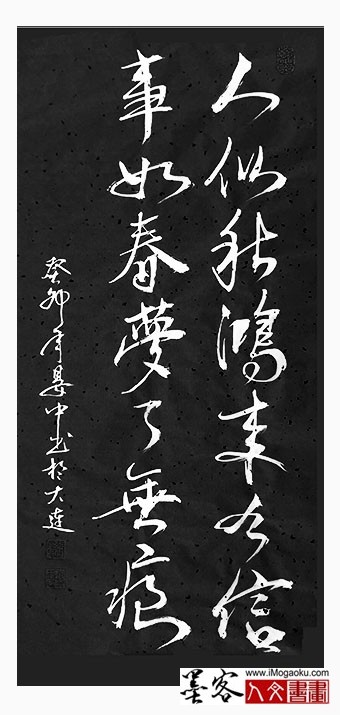 人似秋鴻来有信
事如春夢了無痕
癸卯年中书於大連
墨客
www.iMogaoku.com
人文書畫